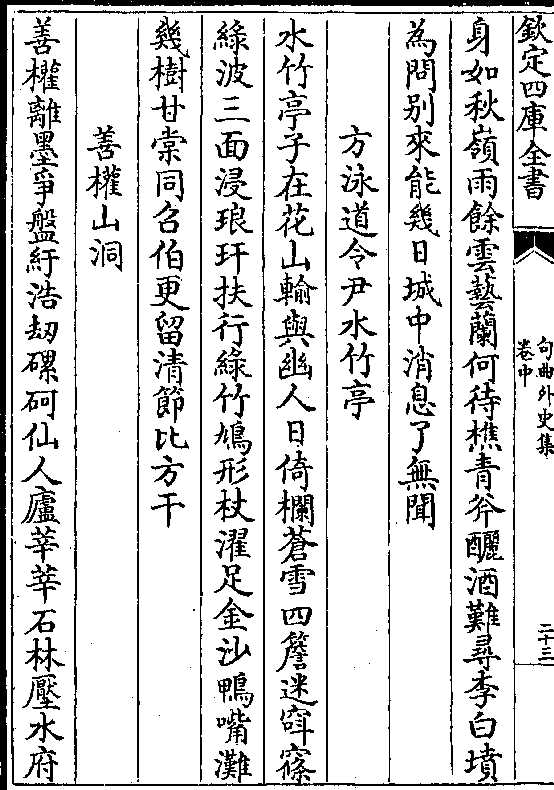 欽定四庫全書
句曲外史集
卷中
二十三
身如秋嶺雨餘雲藝蘭何待樵青斧釃酒難尋李白墳
為問别來能幾日城中消息了無聞
方泳道令尹水竹亭
水竹亭子在花山輸與幽人日倚欄蒼雪四簷迷窅窱
綠波三面浸琅玕扶行綠竹鳩形杖濯足金沙鴨嘴灘
幾樹甘棠同召伯更留清節比方干
善權山洞
善權離墨爭盤紆浩刼磥砢仙人廬莘莘石林壓水府